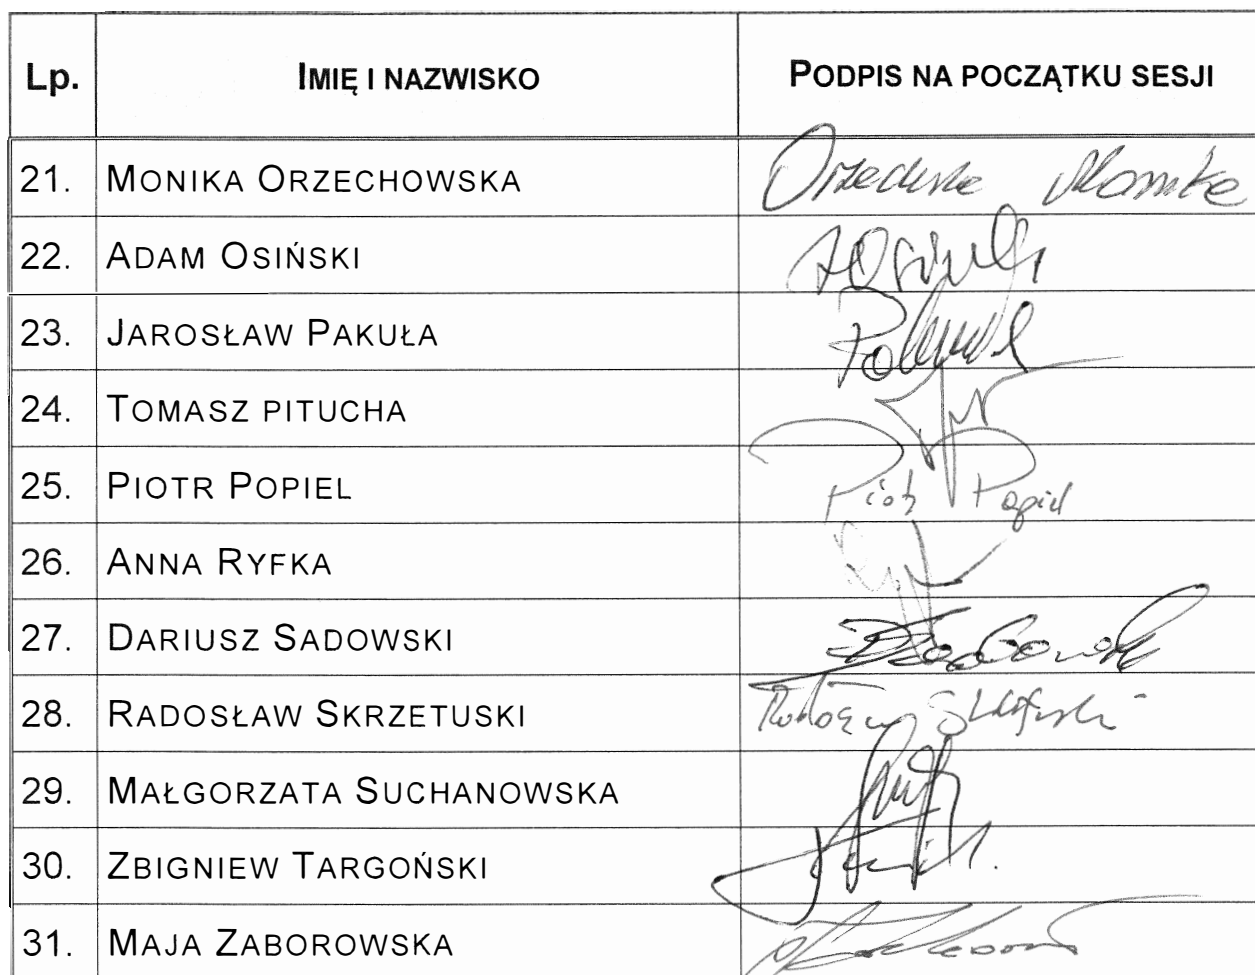 Lp. IMIĘ I NAZWISKO PODPIS NA POCZĄTKU SESJI
21. MONIKA ORZECHOWSKA
22. ADAM OSIŃSKI
23. JAROSŁAW PAKUŁA
24. TOMASZ PITUCHA
25. PIOTR POPIEL Piotr Popiel
26. ANNA RYFKA
27. DARIUSZ SADOWSKI
28. RADOSŁAW SKRZETUSKI
29. MAŁGORZATA SUCHANOWSKA
30. ZBIGNIEW TARGOŃSKI
31. MAJA ZABOROWSKA